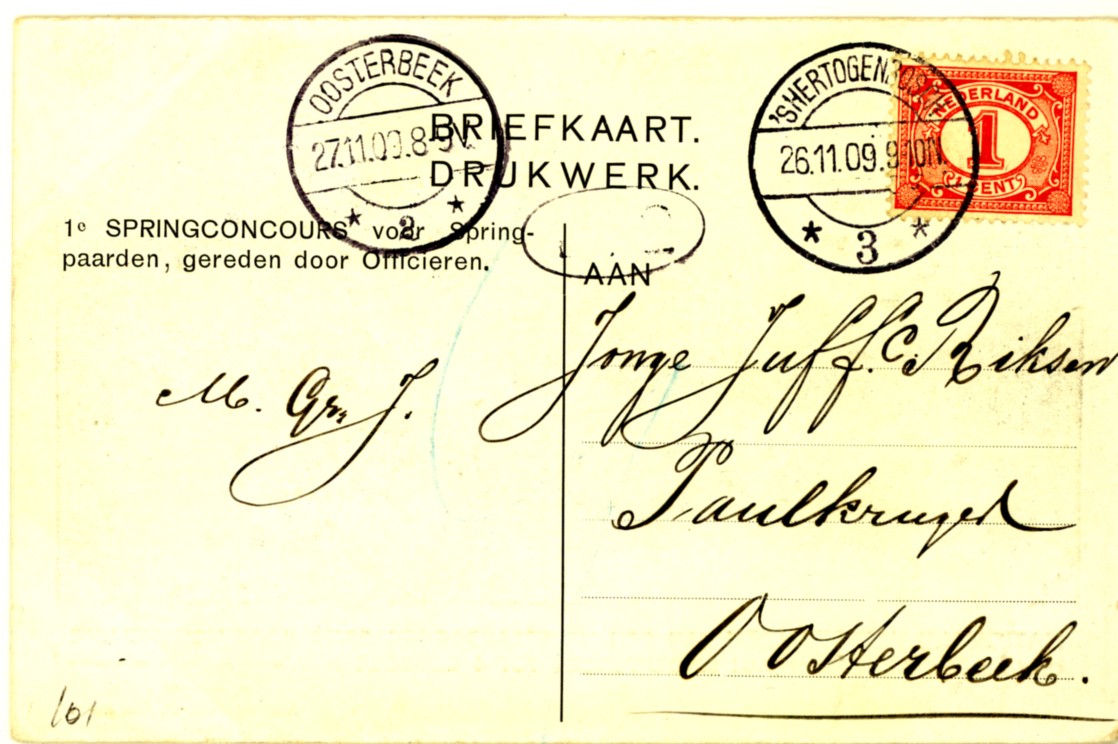 OOSTERBEEK
27.11.09.8-9V.
2
'SHERTOGENBOSCH
26.11.09.9-10N.
3
NEDERLAND
1
CENT
BRIEFKAART.
DRUKWERK.
1e SPRINGCONCOURS voor Spring-
paarden, gereden door Officieren.
AAN
M. Gr. J.
Jonge Juff. C. Riksen
Paulkruger
Oosterbeek.
101